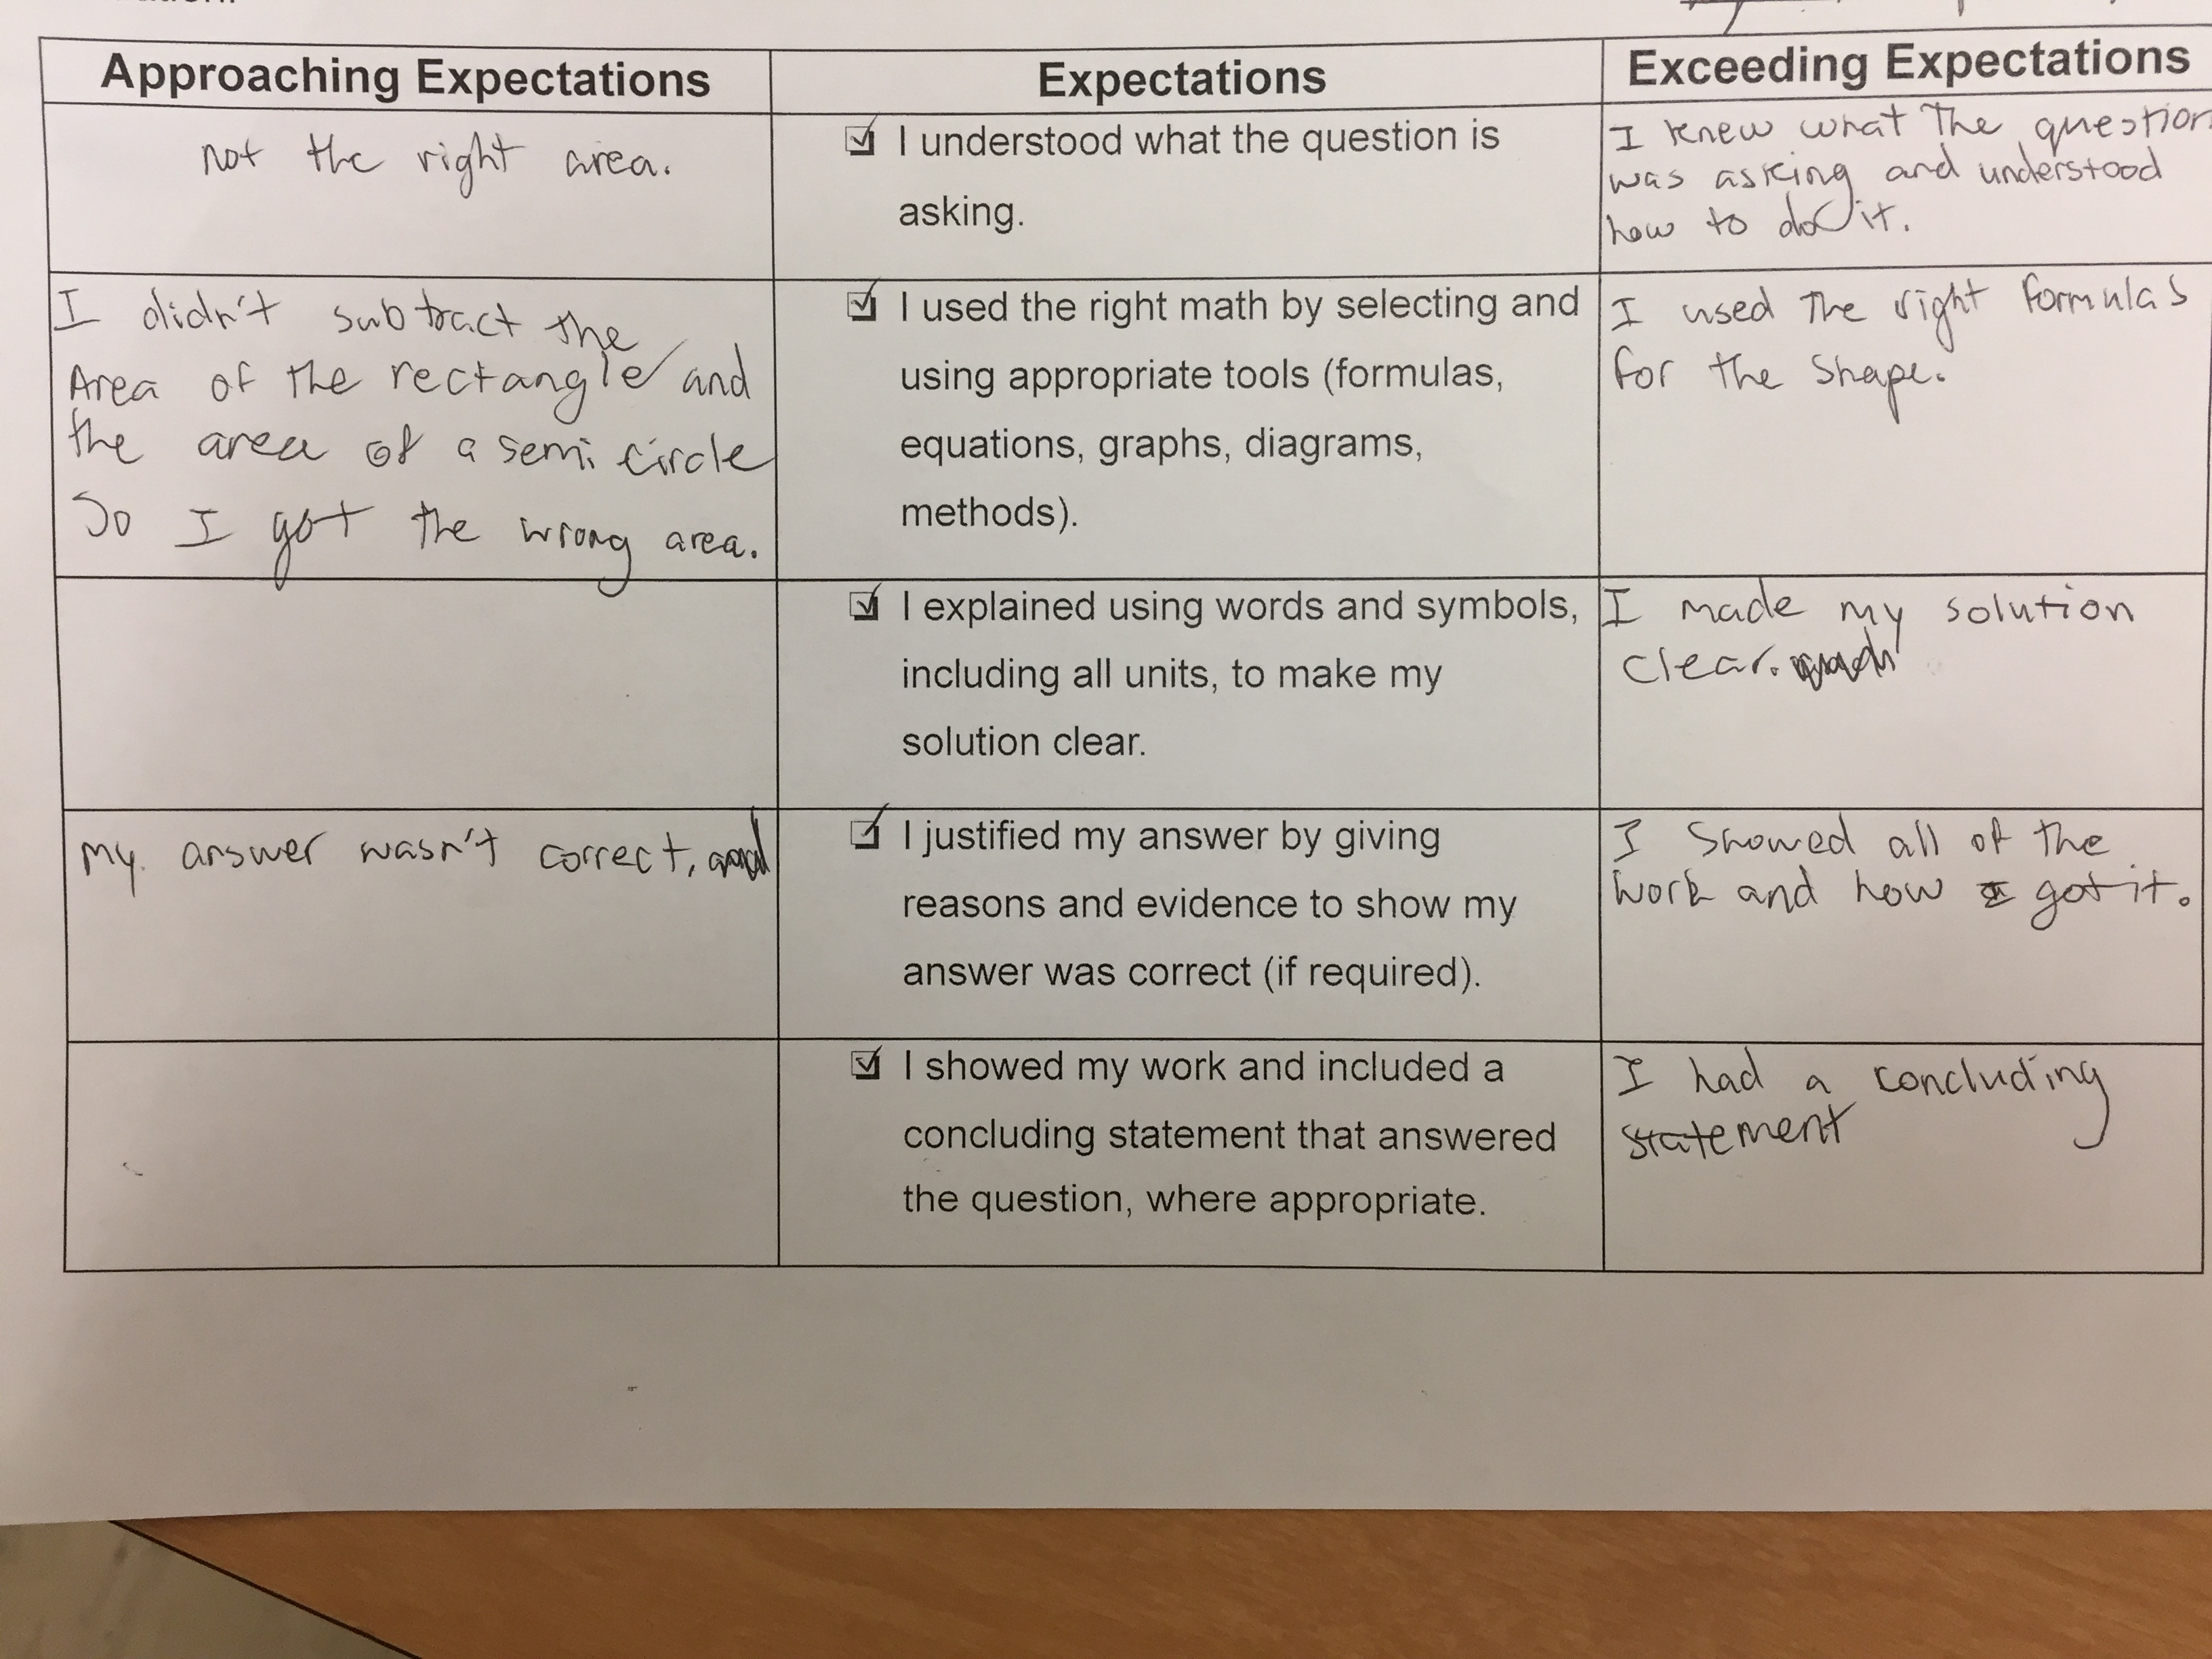 Approaching Expectations
Expectations
Exceeding Expectations
not the right area.
I understood what the question is
asking.
I knew what the question
was asking and understood
how to do it.
I didn't subtract the
Area of the rectangle and
the area of a semi circle
So I got the wrong area.
I used the right math by selecting and
using appropriate tools (formulas,
equations, graphs, diagrams,
methods).
I used the right formulas
for the shape.
I explained using words and symbols,
including all units, to make my
solution clear.
I made my solution
clear.
My answer wasn't correct,
I justified my answer by giving
reasons and evidence to show my
answer was correct (if required).
I showed all of the
work and how I got it.
I showed my work and included a
concluding statement that answered
the question, where appropriate.
I had a concluding
statement